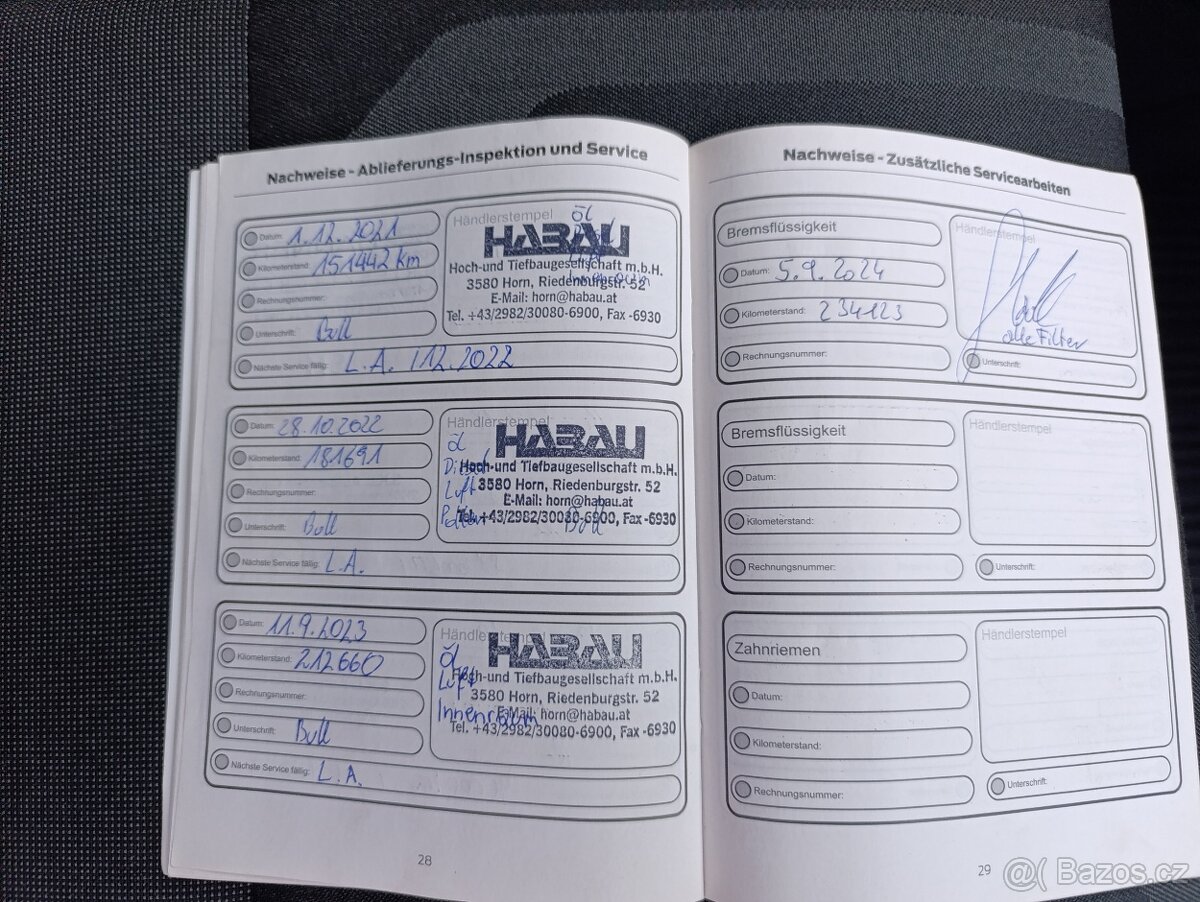 Nachweise - Ablieferungs-Inspektion und Service
Datum: 1.12.2021
Kilometerstand: 151442 km
Rechnungsnummer:
Unterschrift: Bull
Nächste Service fällig: L.A. 112.2022
Händlerstempel
öl
HABAU
Hoch-und Tiefbaugesellschaft m.b.H.
3580 Horn, Riedenburgstr. 52
E-Mail: horn@habau.at
Tel. +43/2982/30080-6900, Fax -6930
Datum: 28.10.2022
Kilometerstand: 181691
Rechnungsnummer:
Unterschrift: Bull
Nächste Service fällig: L.A.
Händlerstempel
öl
HABAU
Hoch-und Tiefbaugesellschaft m.b.H.
Luft
3580 Horn, Riedenburgstr. 52
E-Mail: horn@habau.at
Tel. +43/2982/30080-6900, Fax -6930
Datum: 11.9.2023
Kilometerstand: 212660
Rechnungsnummer:
Unterschrift: Bull
Nächste Service fällig: L.A.
Händlerstempel
öl
HABAU
Hoch-und Tiefbaugesellschaft m.b.H.
Luft
3580 Horn, Riedenburgstr. 52
Innenraum
E-Mail: horn@habau.at
Tel. +43/2982/30080-6900, Fax -6930
28
Nachweise - Zusätzliche Servicearbeiten
Bremsflüssigkeit
Datum: 5.9.2024
Kilometerstand: 234123
Rechnungsnummer:
Händlerstempel
alle Filter
Unterschrift:
Bremsflüssigkeit
Datum:
Kilometerstand:
Rechnungsnummer:
Händlerstempel
Unterschrift:
Zahnriemen
Datum:
Kilometerstand:
Rechnungsnummer:
Händlerstempel
Unterschrift:
29
@( Bazos.cz